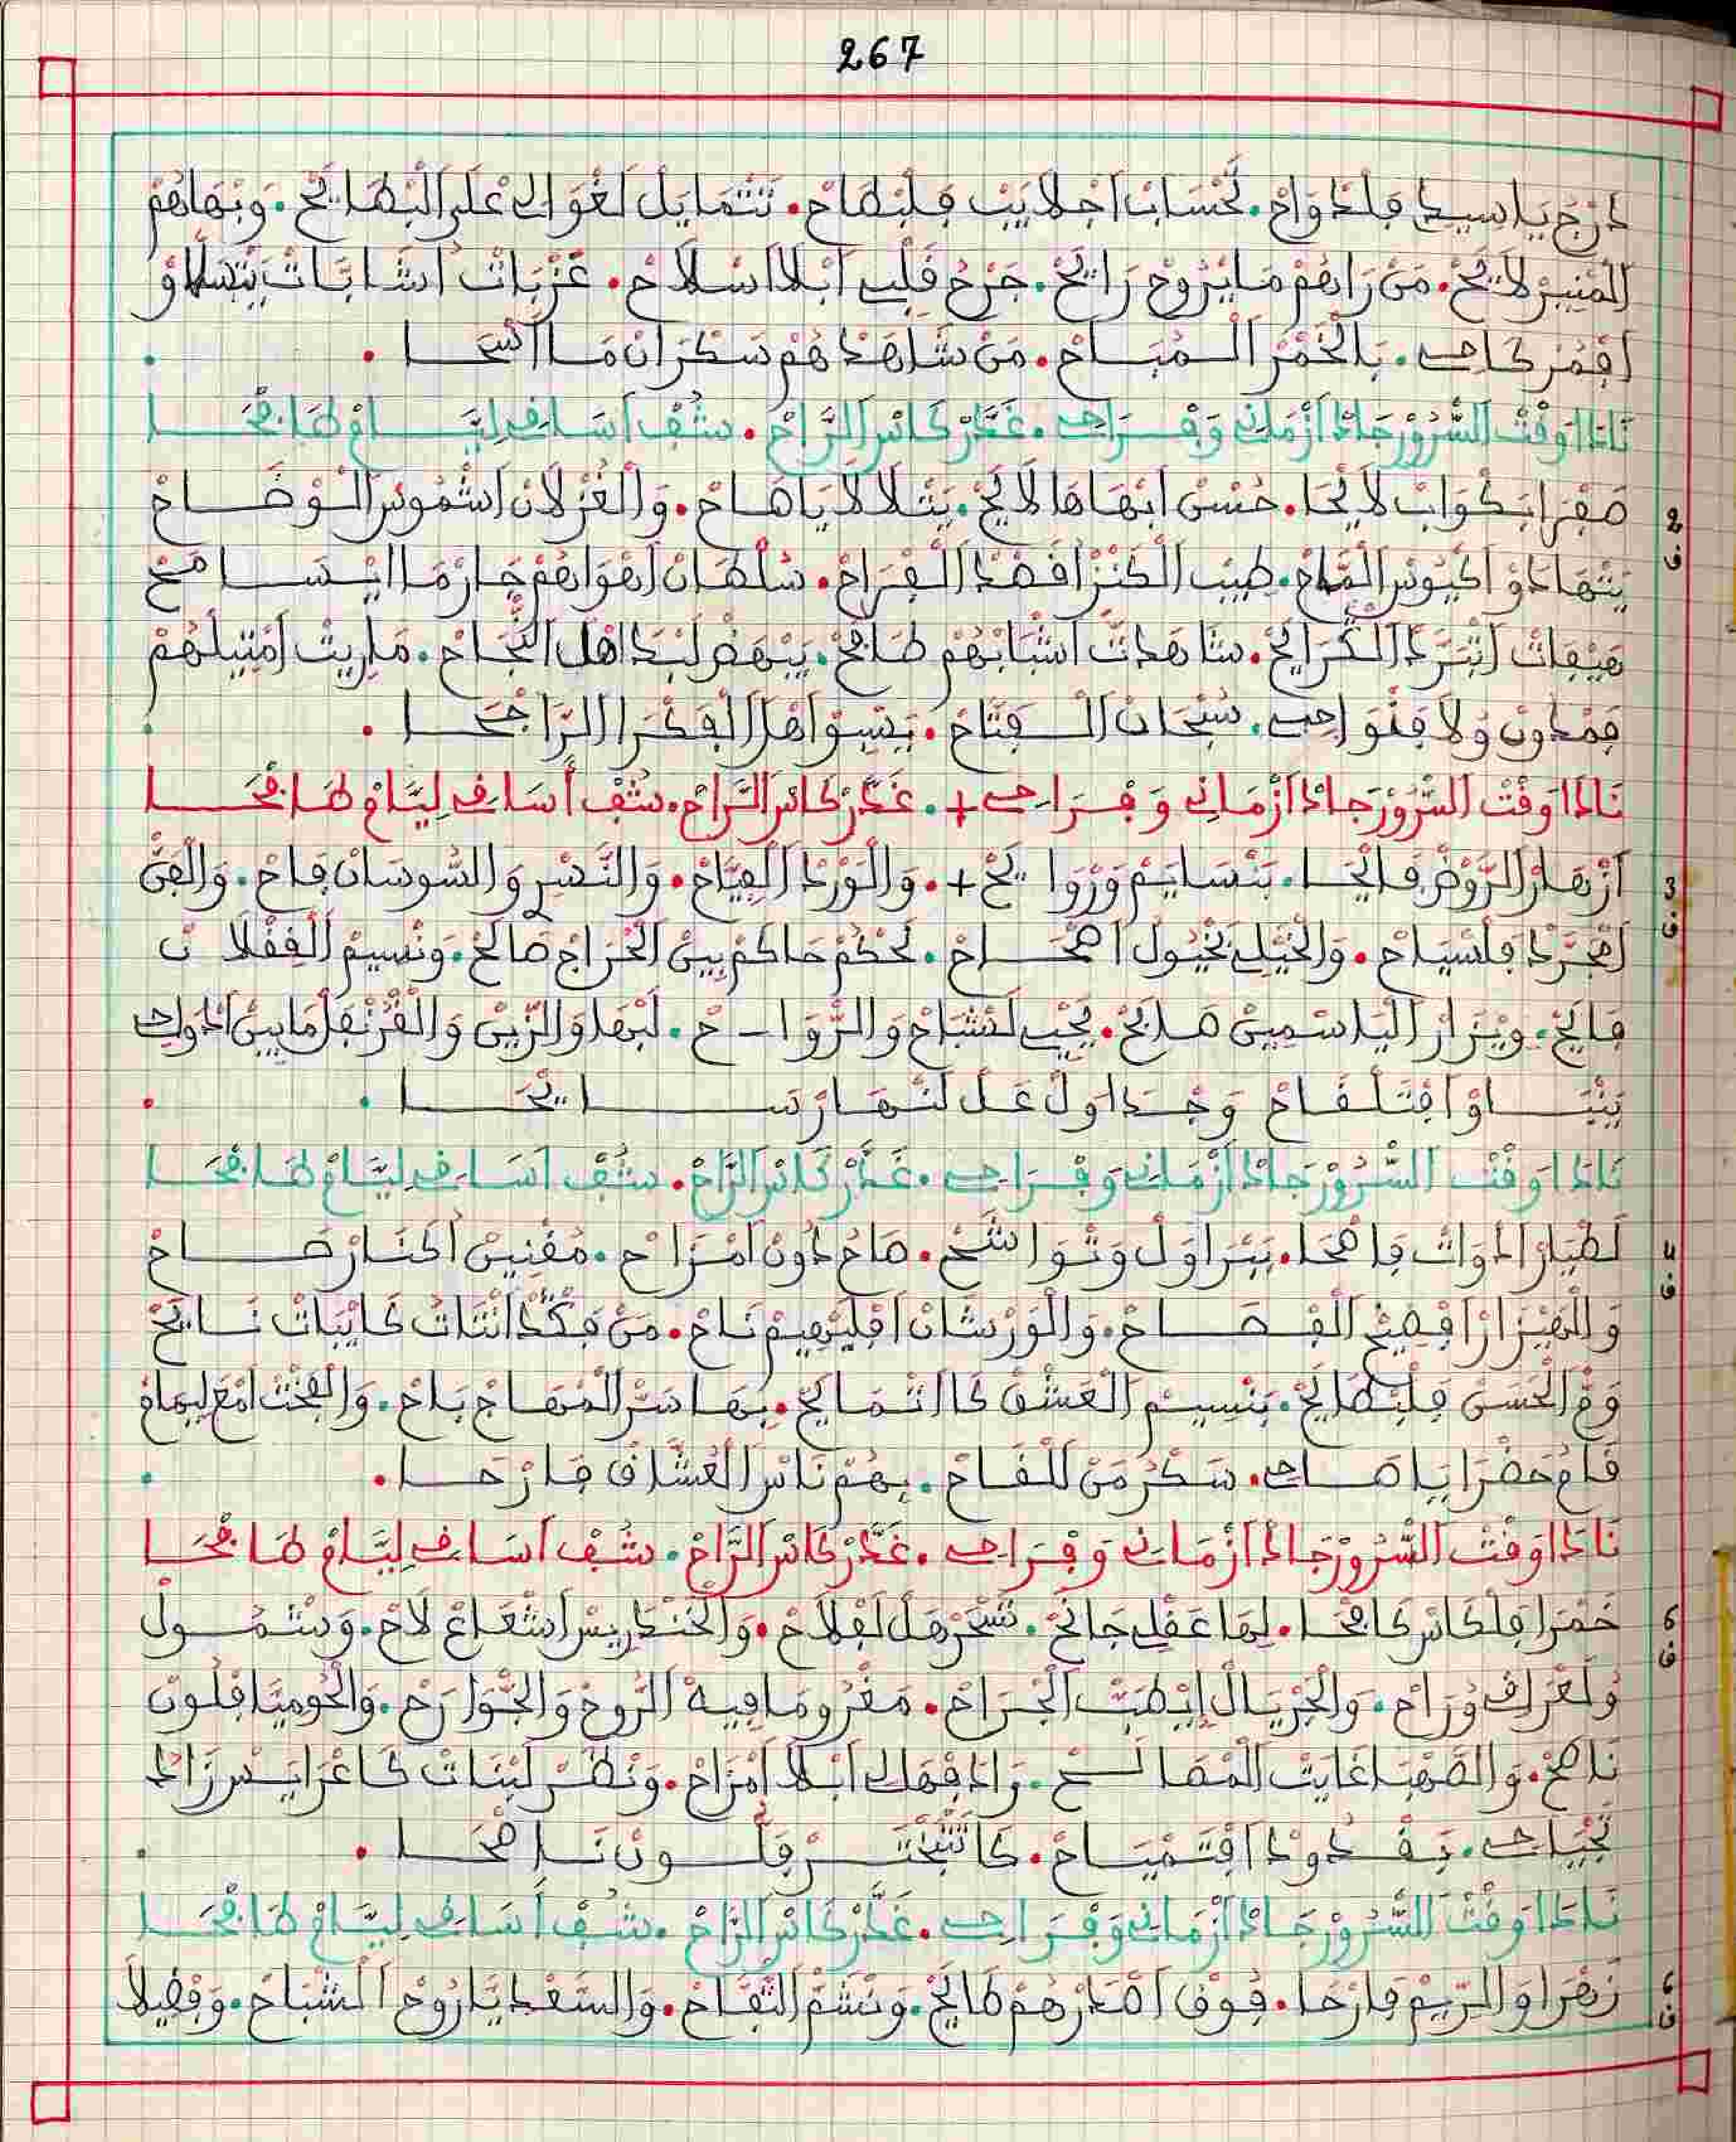 267
دَرْجْ يَا سِيدِي فَلْدْوَاحْ. تَحْسَابْ اجْلَايَبْ فَلْبْطَاحْ. تَتْمَايَلْ لَغْوَالِي عْلَى الْبْطَايَحْ. وَبْهَاهُمْ
الْمْنِيرْ لَايَحْ. مَنْ رَاهُمْ مَا يْرُوحْ رَايَحْ. جَرْحُ قَلْبِي ابْلَا اسْلَاحْ. عَزْبَاتْ اشَابَّاتْ يَتْسَلَّاوْ
اقْمَرْ كَاحِي. بَالْخَمْرْ الْمُبَاحْ. مَنْ شَاهَدْهُمْ سَكْرَانْ مَا اصْحَا .
نَادَا وَقْتْ السُّرُورْ جَادْ ازْمَانِي وَفْرَاحِي. غَدَّرْ كَاسْ الرَّاحْ. شُفْ اسَاقِي لِيَّامْ طَافْحَا
2 صَفْرَا بَكْوَابْ لَايْحَا. حُسْنْ ابْهَاهَا لَايَحْ. يَتْلَالَا يَا صَاحْ. وَالْغُزْلَانْ اشْمُوسْ الْوْضَاحْ
ف يَتْهَادَاوْ اكْيُوسْ الْمْلَاحْ. طِيبْ الْكَنْزْ اقْصَدْ الْفْرَاحْ. سُلْطَانْ اهْوَاهُمْ جَارْ مَا ايْسَامَحْ
هِيفَاتْ اتْبَرَّدْ الْكْرَايَحْ. شَاهَدْتْ اشْبَابْهُمْ طَافَحْ. يَنْهَضْ لَبْدَا اهْلْ النّْجَاحْ. مَا رِيتْ امْثِيلْهُمْ
فَمْدُونْ وُلَا فَنْوَاحِي. سُبْحَانْ الْفَتَّاحْ. يَسْبِيوْ اهْلْ الْفَكْرَا الرَّاجْحَا .
نَادَا وَقْتْ السُّرُورْ جَادْ ازْمَانِي وَفْرَاحِي +. غَدَّرْ كَاسْ الرَّاحْ. شُفْ أسَاقِي لِيَّامْ طَافْحَا
3 ازْهَارْ الرَّوْضْ فَايْحَا. بَنْسَايَمْ وَرْوَايَحْ +. وَالْوَرْدْ الْفِيَّاحْ. وَالنَّسْرِي وَالسُّوسَانْ فَاحْ. وَالْفَنّْ
ف امْجَرَّدْ فَلْسْيَاحْ. وَالْخَيْلِي بَخْيُولْ اصْحَاحْ. يَحْكُمْ حَاكَمْ بِينْ الْخْرَاجْ صَالَحْ. وَنْسِيمْ الْفَفْلَانْ
فَايَحْ. وِيْزَارْ الْيَاسْمِينْ صَلَايَحْ. يَحْيِي لَشْبَاحْ وَالرّْوَاحْ. لَبْهَا وَالزِّينْ وَالْقْرُنْفَلْ مَا بِينْ ادْوَاحِي
يَنْبَاوْ افْتَلْقَاحْ وَجْدَاوَلْ عَلْ لَنْهَارْ سَايْحَا .
نَادَا وَقْتْ السُّرُورْ جَادْ ازْمَانِي وَفْرَاحِي. غَدَّرْ كَاسْ الرَّاحْ. شُفْ اسَاقِي لِيَّامْ طَافْحَا
4 لَطْيَارْ ادْوَاتْ فَاصْحَا. بَبْرَاوَلْ وَتْوَاشَحْ. صَاحُ دُونْ امْزَاحْ. مُقْنِينْ اكْنَارْ صَاحْ
ف وَالْهِيزَارْ افْصِيحْ الْفْصَاحْ. وَالْوَرْشَانْ اقْلِيهِيمْ نَاحْ. مَنْ فَكْدْ انْتَاتُ كَايْبَاتْ نَايَحْ
وُمّْ الْحْسَنْ فَلْبْطَايَحْ. بَنْسِيمْ الْعَشْقْ كَا اتْمَايَحْ. بَهَا سَرّْ الْمْهَاجْ بَاحْ. وَالْفَخْتْ امْعَ لِيمَامْ
قَامْ حَضْرَا يَا صَاحِي. سَكْرُ مَنْ لَلْقَاحْ. بِهُمْ نَاسْ الْعُشَّاقْ فَارْحَا.
نَادَا وَقْتْ السُّرُورْ جَادْ ازْمَانِي وَفْرَاحِي. غَدَّرْ كَاسْ الرَّاحْ. شُفْ اسَاقِي لِيَّامْ طَافْحَا
5 خَمْرَا فَلْكَاسْ طَافْحَا. لِهَا عَقْلِي جَانَحْ. تَسْحَرْ هَلْ لَفْلَاحْ. وَالْخَنْدَرِيسْ اشْعَاعُ لَاحْ. وَشْمُولْ
ف وُلَغْرَاقِي وُرَاحْ. وَالْجَرْيَالْ ايْطَبّْ الْجْرَاحْ. مَغْرُومَا فِيهْ الرُّوحْ وَالْجْوَارَحْ. وَالْحُومِيَّا فَلُونْ
نَاصَحْ. وَالصَّهْبَا غَايْتْ الْمْصَالَحْ. رَادْ فَهْلِي ابْلَا امْزَاحْ. وَنْظَرْ لَبْنَاتْ كَاعْرَايَسْ زَادْ
تَحْيَاحِي. بَقْدُودْ افْتَمْيَاحْ. كَاتَّبَخْتَرْ فَلُّونْ نَاصْحَا .
نَادَا وَقْتْ السُّرُورْ جَادْ ازْمَانِي وَفْرَاحِي. غَدَّرْ كَاسْ الرَّاحْ. شُفْ أسَاقِي لِيَّامْ طَافْحَا
6 زَهْرَا وَالرِّيمْ فَارْحَا. فُوقْ اصْدَرْهُمْ طَايَحْ. وَنْشَمّْ التُّفَّاحْ. وَالسَّعْدِيَّا رُوحْ الشْبَاحْ. وَفْضِيلَا
ف